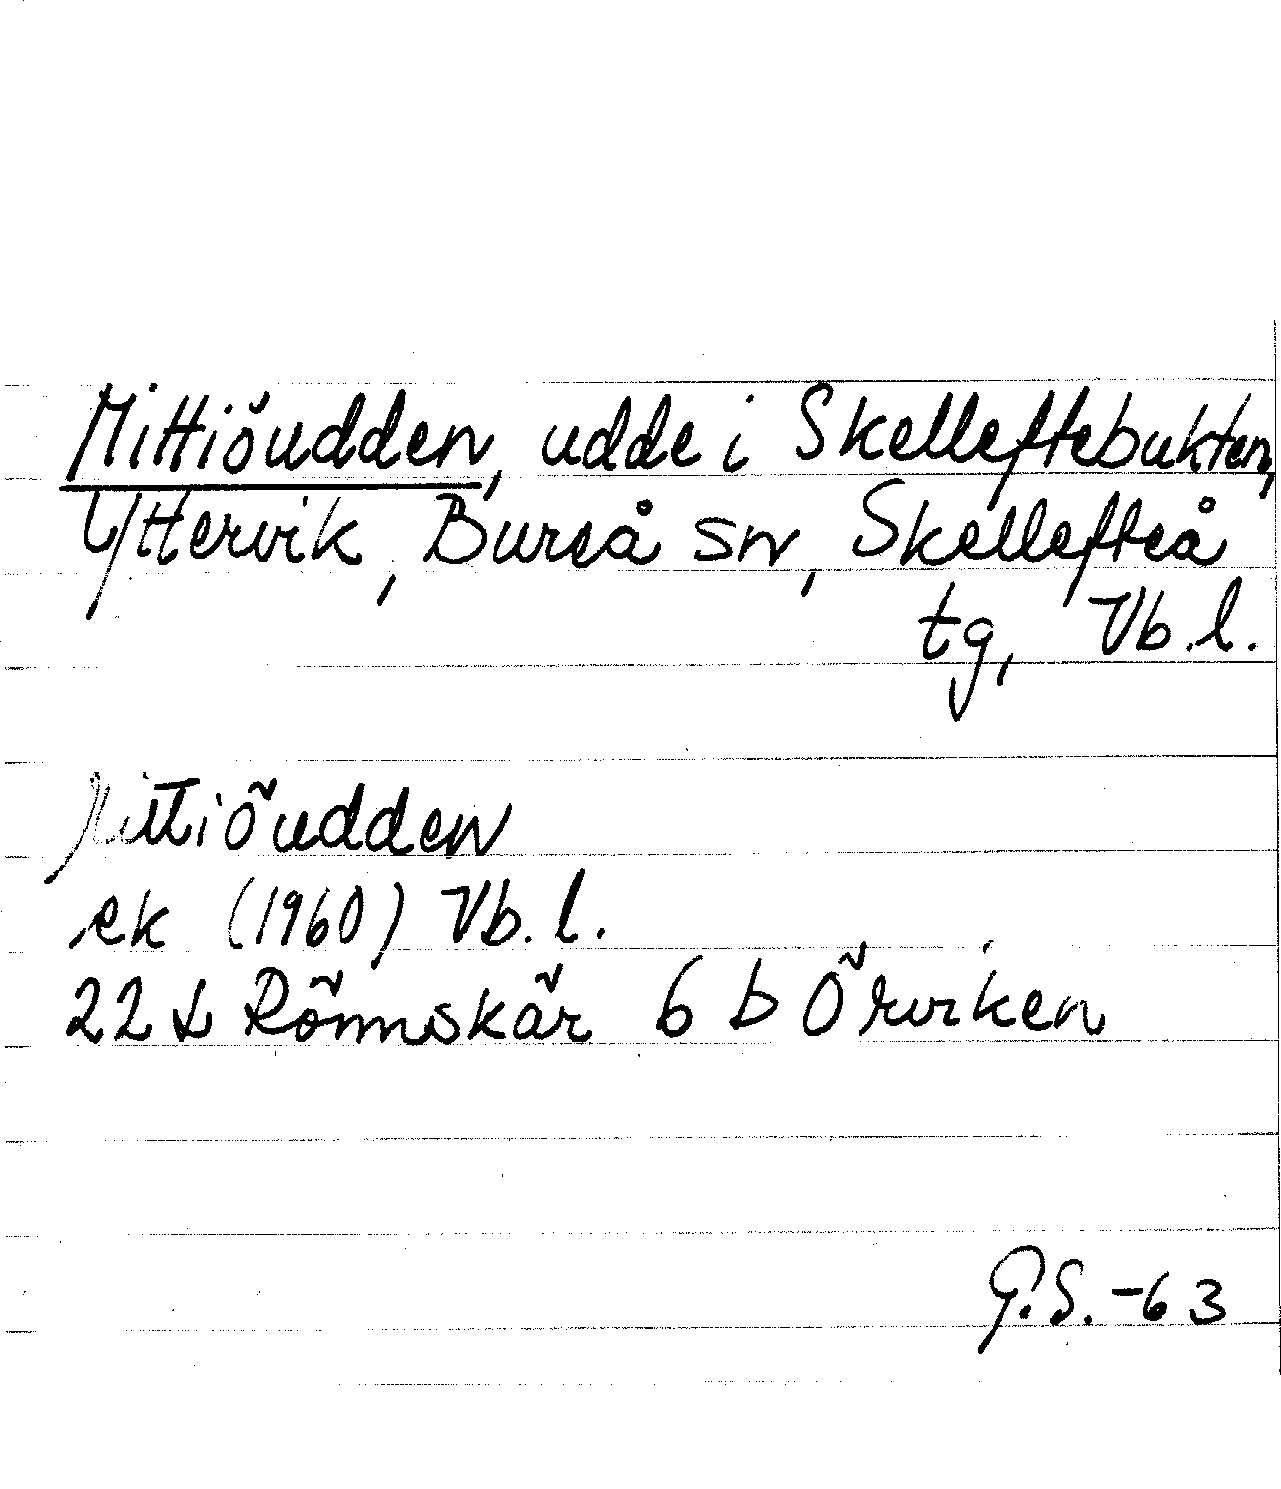 Mittiöudden, udde i Skelleftebukten,
Yttervik, Bureå sn, Skellefteå
tg, Vb.l.
Mittiöudden
ek (1960) Vb.l.
22 L Rönnskär 6 b Örviken
G.S. -63